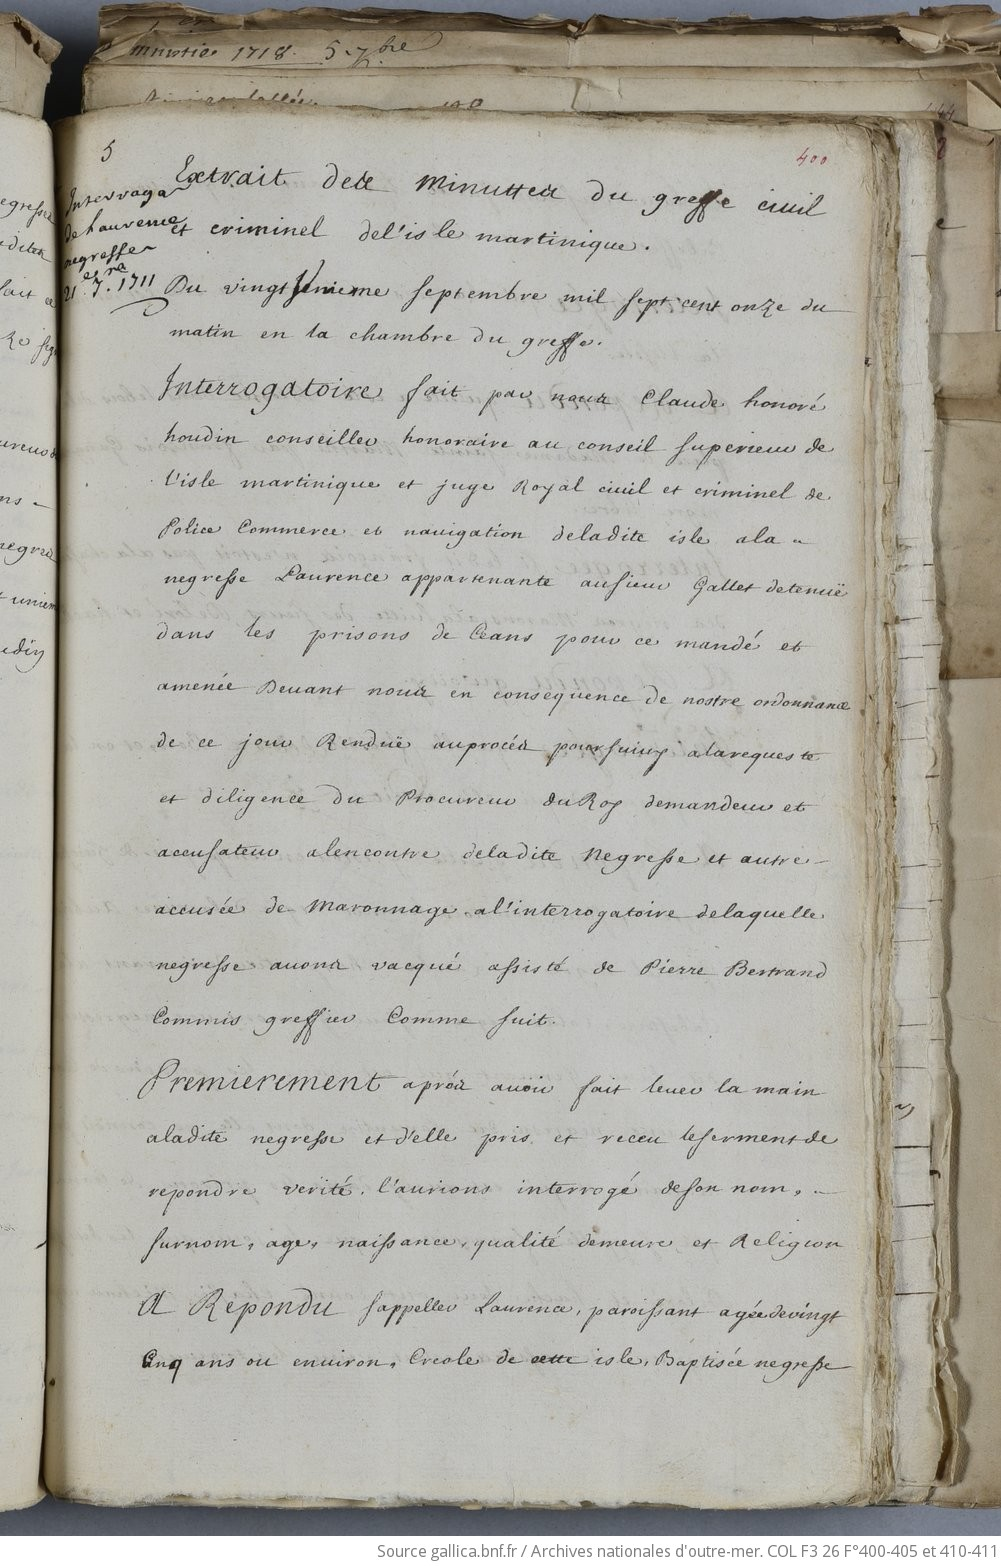 minutte 1718. 5. 7bre
5
400
Interroga
de Laurence
negresse
21e 7bre 1711
Extrait des minuttes du greffe civil
et criminel del'isle martinique.
Du vingt unieme septembre mil sept cent onze du
matin en la chambre du greffe.
Interrogatoire fait par nous Claude honoré
houdin conseiller honoraire au conseil superieur de
l'isle martinique et juge Royal civil et criminel de
Police Commerce et navigation deladite isle ala
negresse Laurence appartenante ausieur Gallet detenuë
dans les prisons de Ceans pour ce mandé et
amenée Devant nous en consequence de nostre ordonnance
de ce jour Renduë auprocés poursuivy alarequeste
et diligence du Procureur duRoy demandeur et
accusateur alencontre deladite Negresse et autre
accusée de Maronnage. al'interrogatoire delaquelle
negresse avons vacqué assisté de Pierre Bertrand
Commis greffier Comme suit.
Premierement aprés avoir fait lever la main
aladite negresse et d'elle pris et receu leserment de
repondre verité. l'aurions interrogé deson nom,
surnom, age, naissance, qualité demeure et Religion
A Repondu sappeller Laurence, paroissant agée devingt
Cinq ans ou environ, Creole de cette isle, Baptisée negresse
Source gallica.bnf.fr / Archives nationales d'outre-mer. COL F3 26 F°400-405 et 410-411